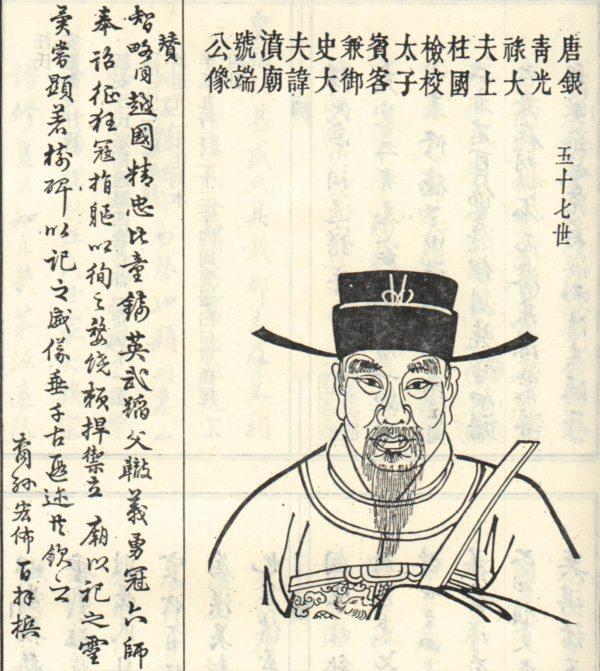 唐銀
青光
祿大
夫上
柱國
檢校
太子
賓客
兼御
史大
夫諱
濆廟
號端
公像
五十七世
贊
智略同越國精忠比童錡英武蹈父轍義勇冠六師
奉詔征狂寇捐軀以徇之婺饒賴捍禦立廟以記之靈
爽常顯著樹碑以記之威儀垂千古遐迩共欽之
裔孫宏佈百拜撰